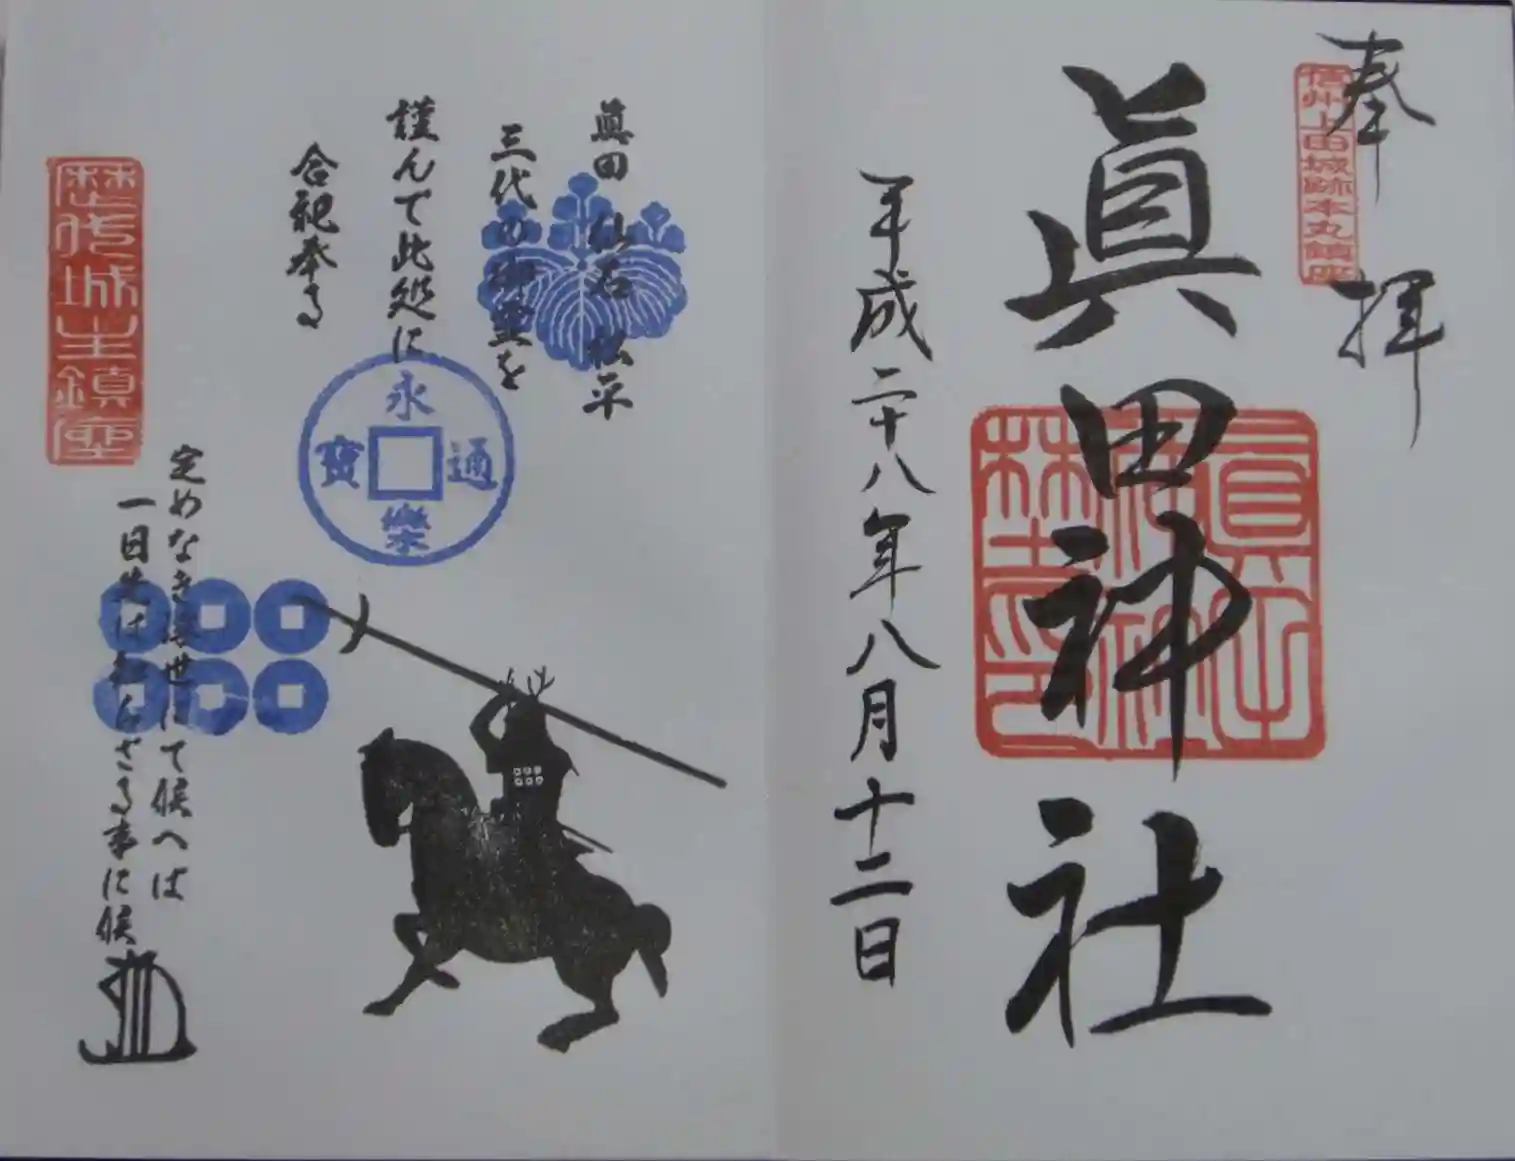 奉拝
信州上田城跡本丸鎮座
眞田神社
眞田神社之印
平成二十八年八月十二日
眞田 仙石 松平
三代の御霊を
謹んで此処に
合祀奉る
永樂通寳
歴代城主鎮座
定めなき浮世にて候へば
一日先は知らざる事に候